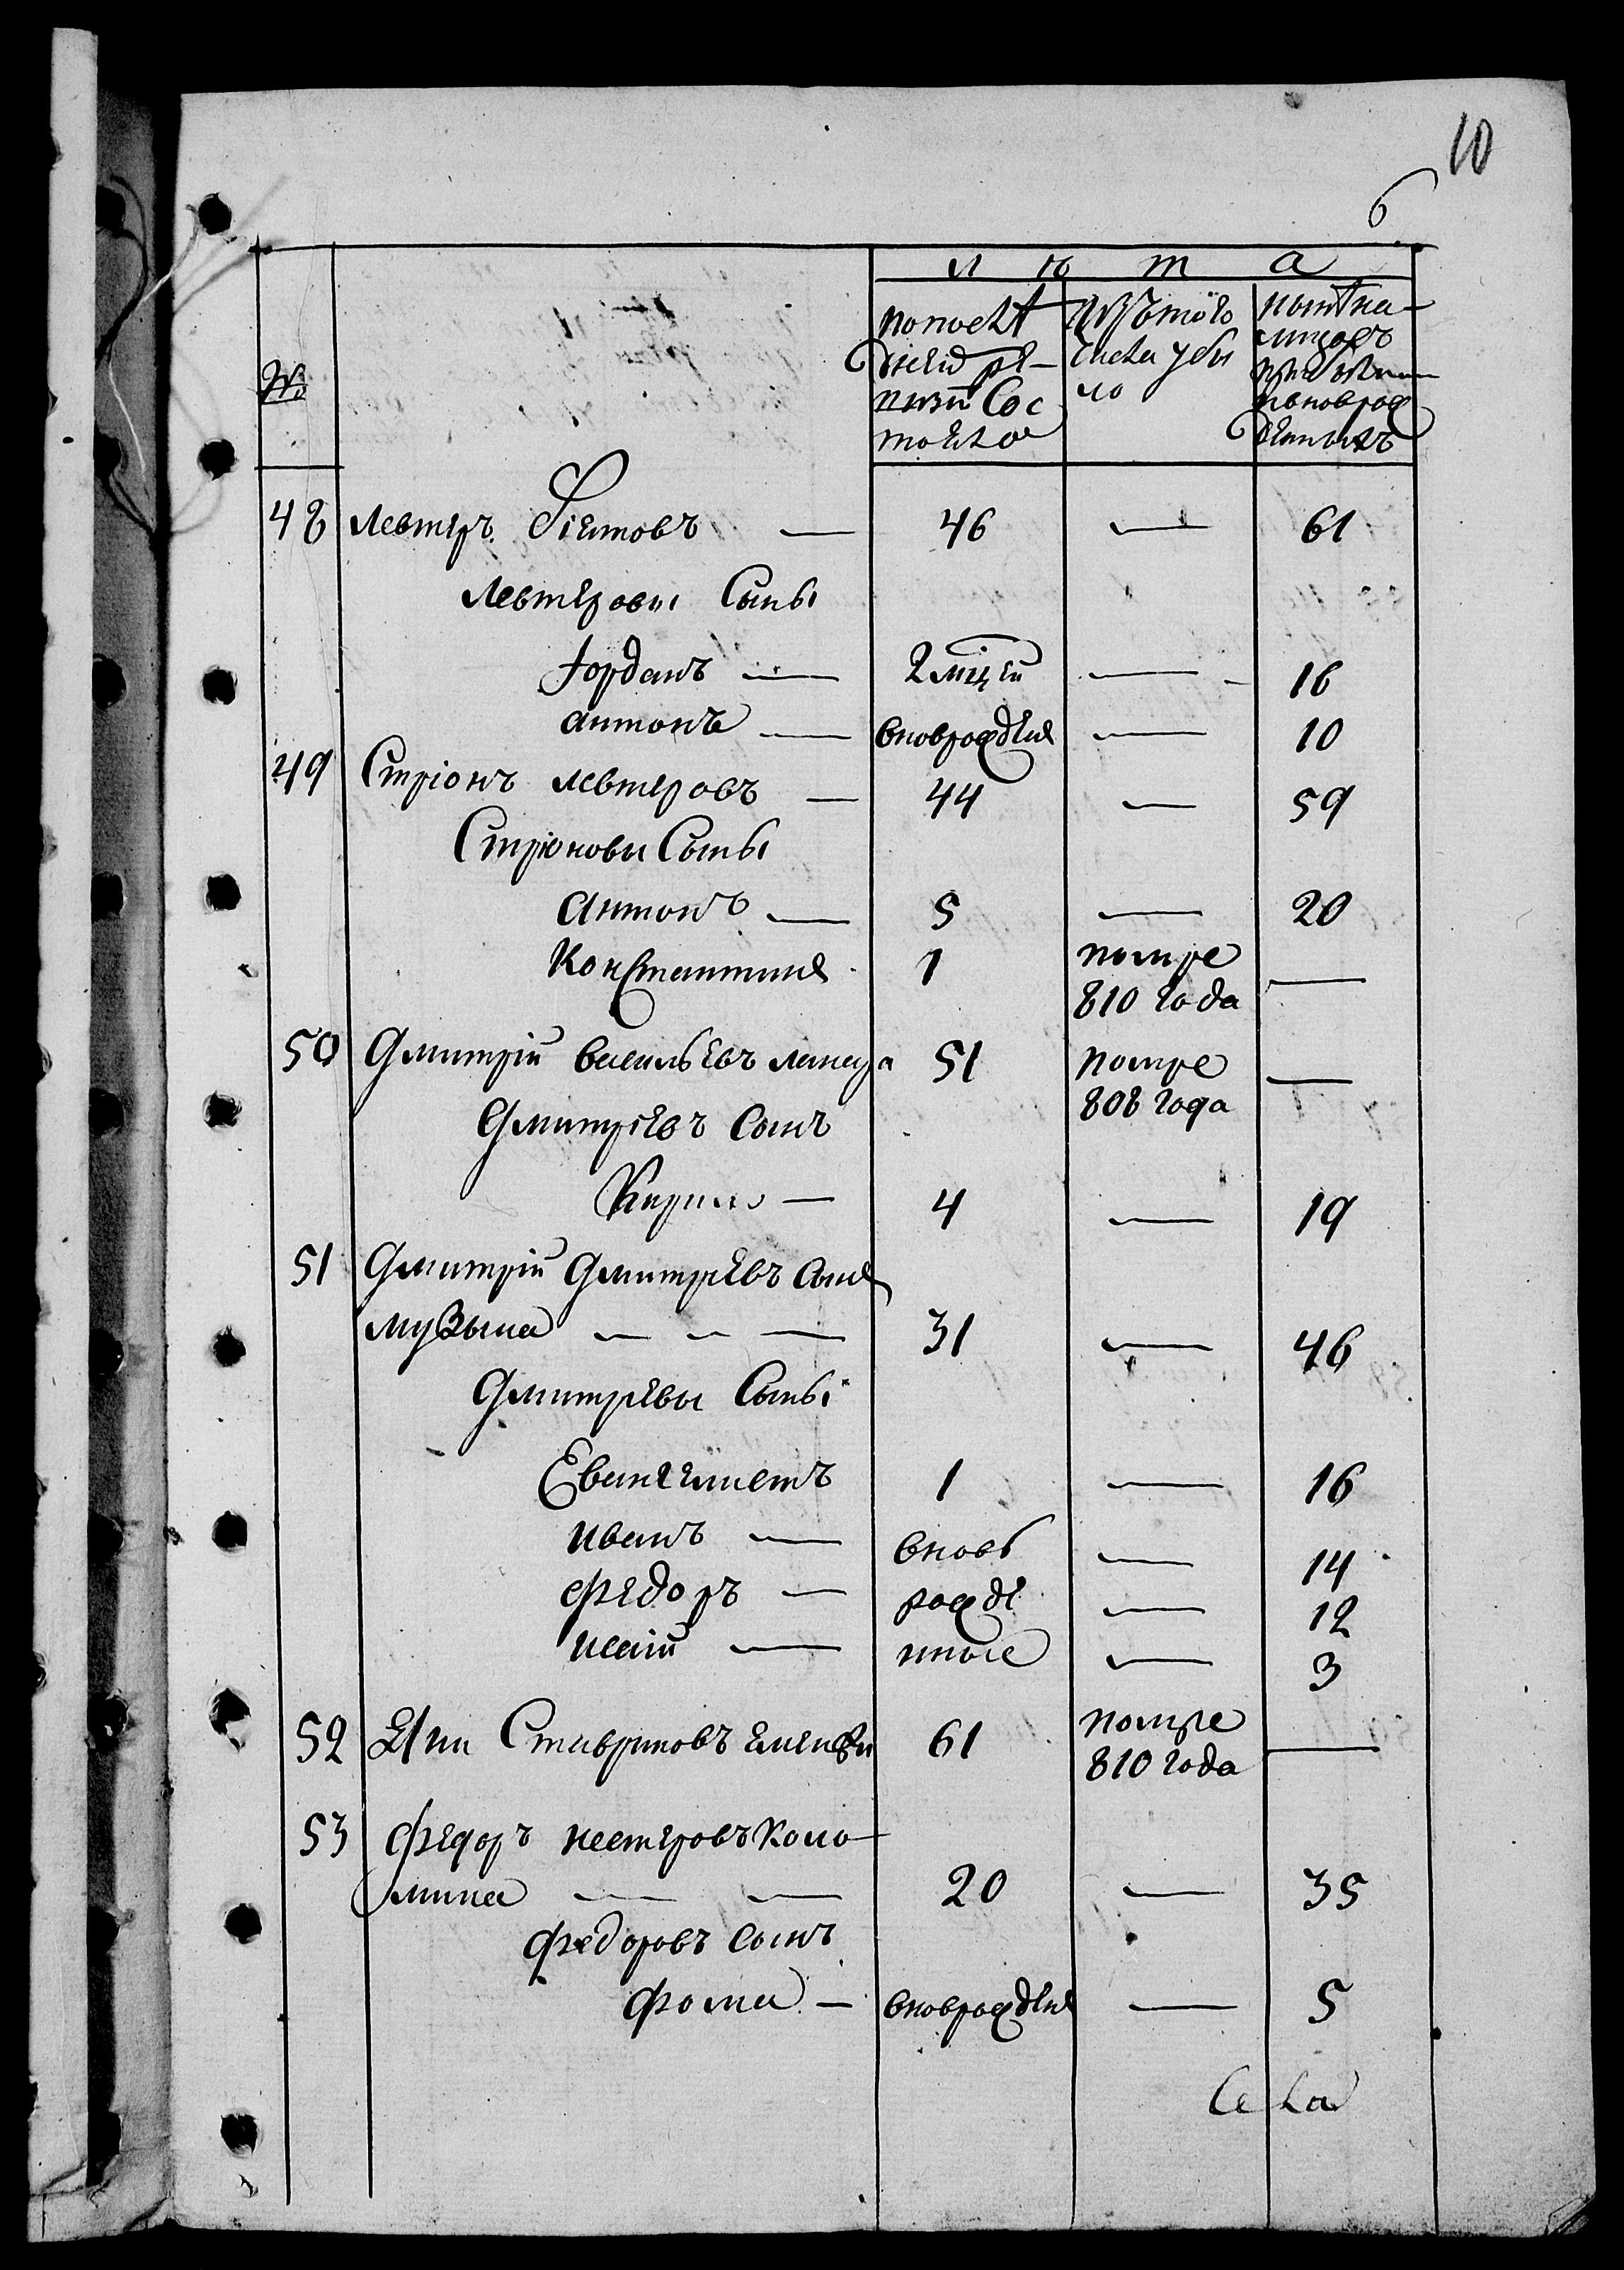 10
6
л ѣ т а
№
по послѣ
дней ре-
визии Сос
тояло
Изътого
числа убы
ло
ныне на-
лицо съ
прибылы
ми новорож
денныхъ
48 Левтеръ — 46 — 61
Левтеровы Сыны
Іорданъ — 2 мцей — 16
антонъ — вноврожден — 10
49 Стріонъ левтеровъ — 44 — 59
Стріоновы Сыны
Антонъ — 5 — 20
Константинъ 1 помре
810 года —
50 Дмитрій васильевъ 51 помре
808 года —
Дмитріевъ Сынъ
Кирило — 4 — 19
51 Дмитрій Дмитріевъ Сынъ
музыка — — — 31 — 46
Дмитріевы Сыны
Евангелистъ 1 — 16
иванъ — вновь — 14
Федоръ — рожде — 12
исаій — нные — 3
52 Ставриновъ 61 помре
810 года —
53 Федоръ нестеровъ Коло-
мина — — 20 — 35
Федоровъ Сынъ
Фома — вноврожден — 5
Села